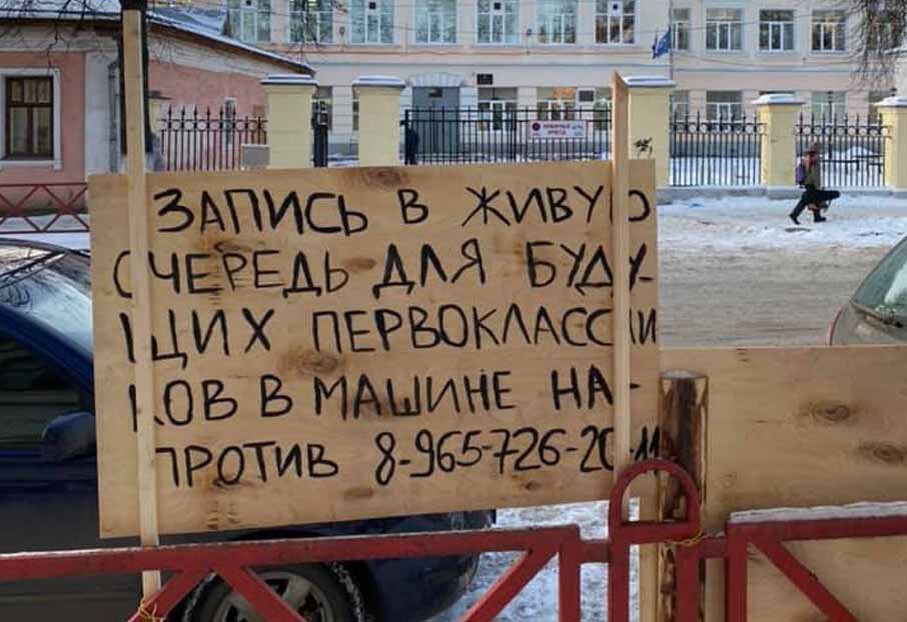 ЗАПИСЬ В ЖИВУЮ
ОЧЕРЕДЬ ДЛЯ БУДУ-
ЩИХ ПЕРВОКЛАССНИ
КОВ В МАШИНЕ НА-
ПРОТИВ 8-965-726-20-11